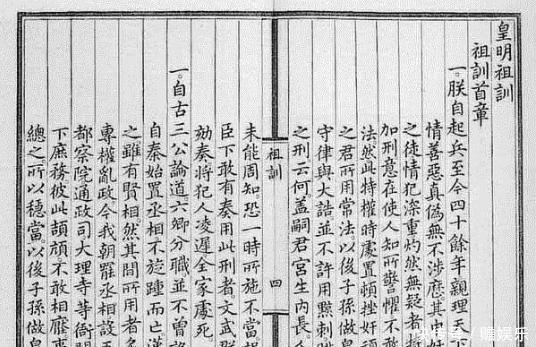 皇明祖訓
祖訓首章
一。朕自起兵至今四十餘年親理天下
情善惡真偽無不涉歷其中奸
之徒情犯深重灼然無疑者特
加刑意在使人知所警懼不敢
法然此特權時處置頓挫奸頑
之君所用常法以後子孫做皇
守律與大誥並不許用黥刺
之刑云何蓋嗣君宮生內長人
祖訓 四
未能周知恐一時所施不當
臣下敢有奏用此刑者文武群
劾奏將犯人凌遲全家處死
一。自古三公論道六卿分職並不曾設
自秦始置丞相不旋踵而亡漢
之雖有賢相然其間所用者多
專權亂政今我朝罷丞相設五
都察院通政司大理寺等衙門
下庶務彼此頡頏不敢相壓事
總之所以穩當以後子孫做皇
赡娱乐